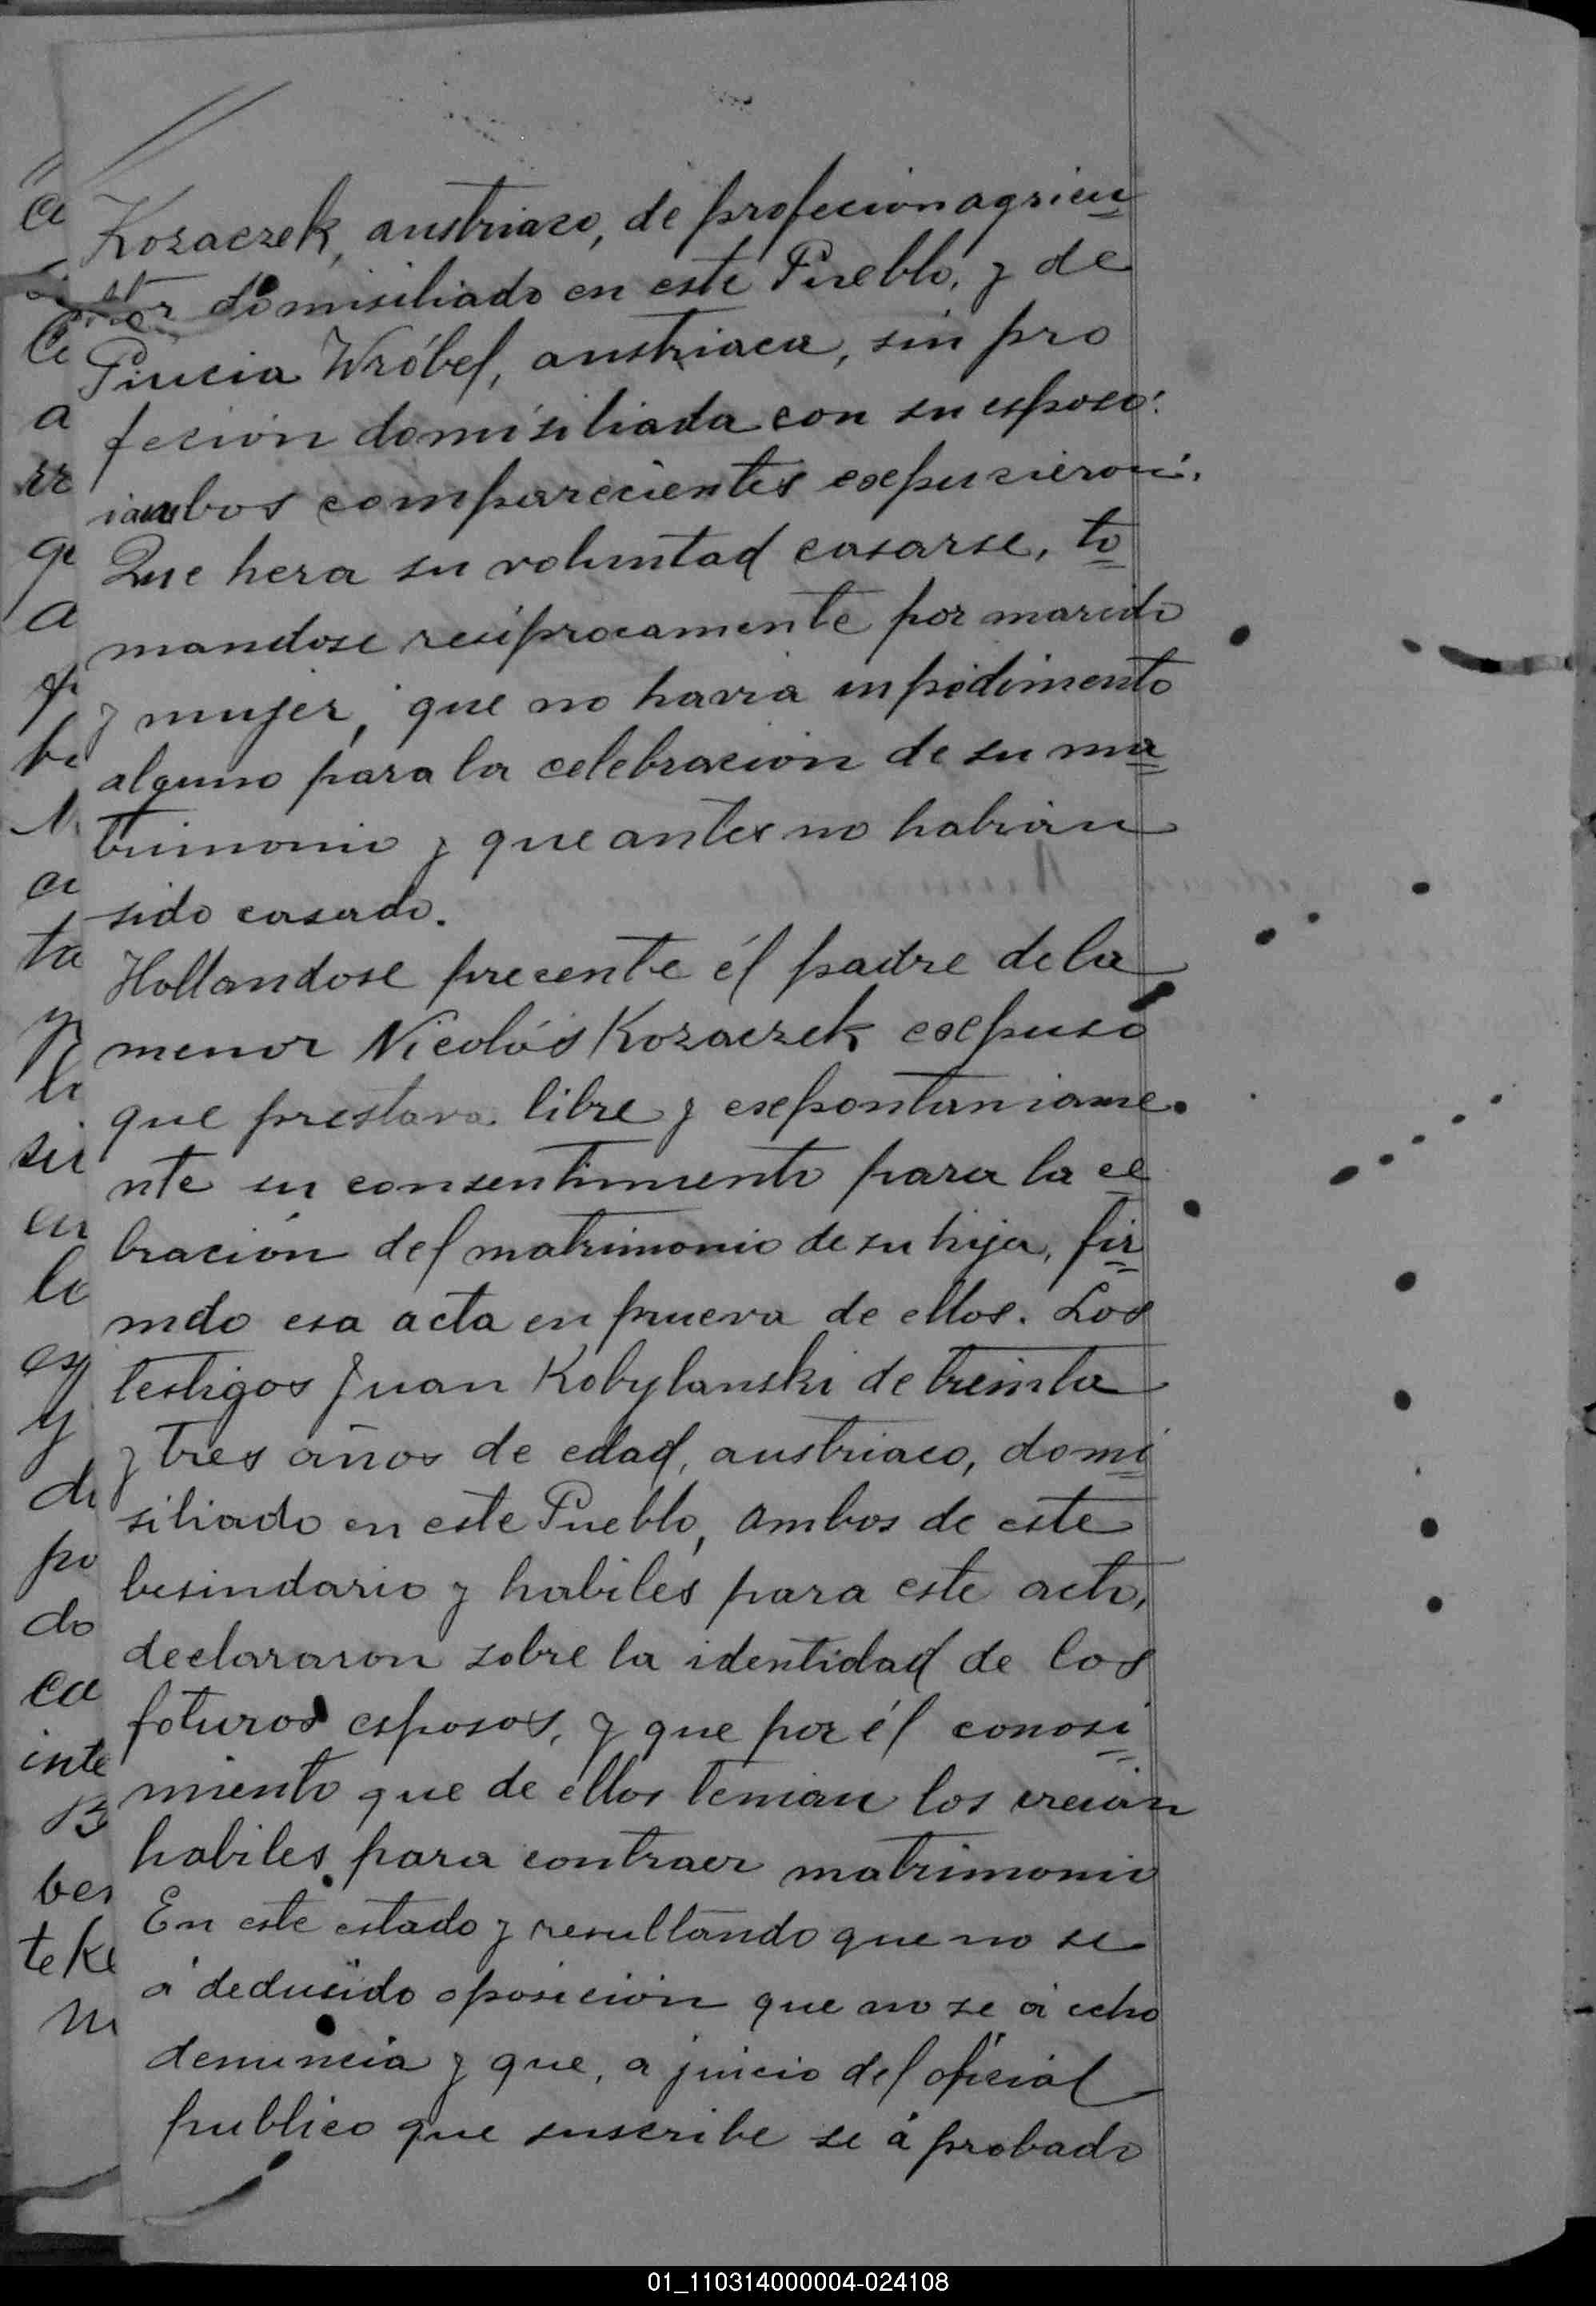 Kozaczek, austriaco, de profecion agricu
ltor domisiliado en este Pueblo, y de
Wróbel, austriaca, sin pro
fecion domisiliada con su esposo:
ambos comparecientes exepucieron:
Que hera su voluntad casarse, to
mandose resiprocamente por marido
y mujer, que no havia inpedimento
alguno para la celebracion de su ma
trimonio y que antes no habian
sido casado.
Hollandose precente él padre de la
menor Nicolás Kozaczek exepuso
que prestava libre y exepontaniame
nte su consentimiento para la ce
bración del matrimonio de su hija, fir
mdo esa acta en prueva de ellos. Los
testigos Juan Kobylanski de treinta
y tres años de edad, austriaco, domi
siliado en este Pueblo, ambos de este
besindario y habiles para este acto,
declararon sobre la identidad de los
foturos esposos, y que por él conosi
miento que de ellos tenian los creian
habiles para contraer matrimonio
En este estado y resultando que no se
á deducido oposicion que no se á echo
denuncia y que, a juicio del oficial
publico que suscribe se á probado
01_110314000004-024108